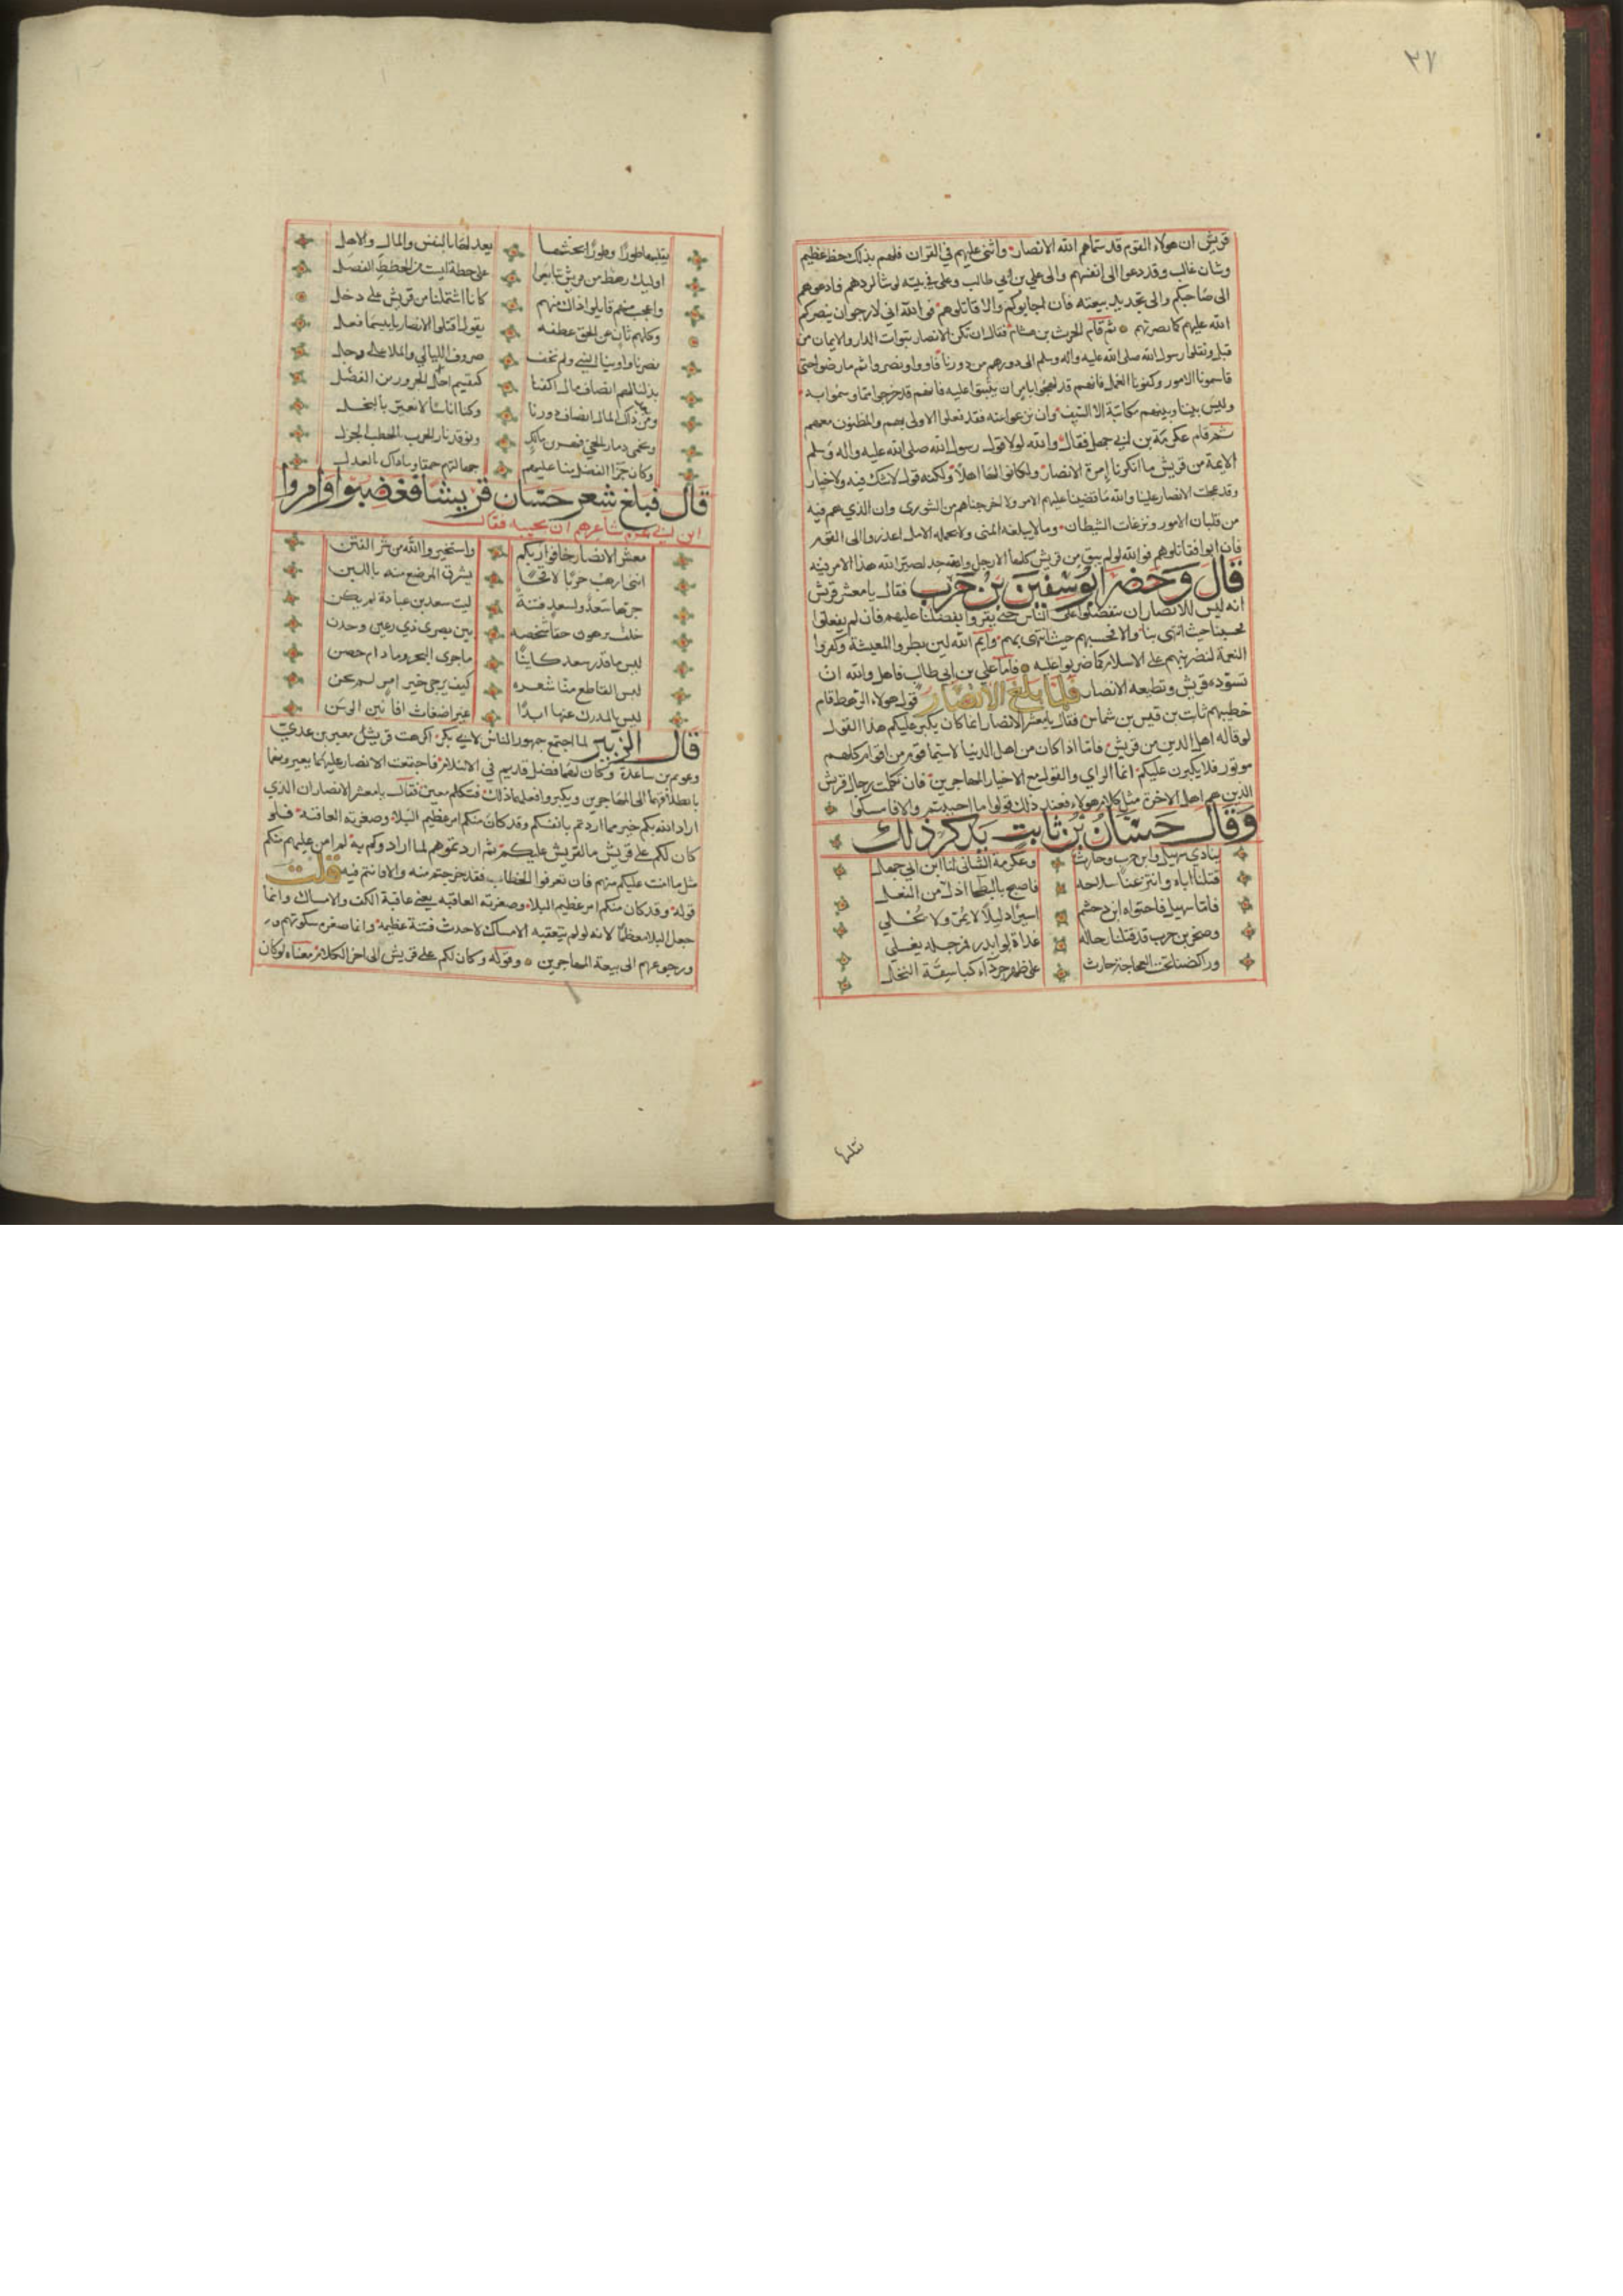 ٣٧
قريش ان هولاء القوم قد سماهم الله الانصار واثنى عليهم في القران فلهم بذلك حظ عظيم
وشان غالب وقد دعوا الى انفسهم والى علي بن ابي طالب وعلي في بيته لو شا لردهم فادعوهم
الى صاحبكم والى تجديد بيعته فان اجابوكم والا قاتلوهم فو الله اني لارجو ان ينصركم
الله عليهم كما نصرتم بهم ثم قام الحرث بن هشام فقال ان تكن الانصار تبوات الدار والايمان من
قبل ونقلوا رسول الله صلى الله عليه واله وسلم الى دورهم من دورنا فاووا ونصروا ثم ما رضوا حتى
قاسمونا الاموال وكفونا العمل فانهم قد لهجوا بامر ان ثبتوا عليه فانهم قد خرجوا مما وسموا به
وليس بيننا وبينهم معاتبة الا السيف وان نزعوا عنه فقد فعلوا الاولى بهم والمظنون معهم
ثم قام عكرمة بن ابي جهل فقال والله لولا قول رسول الله صلى الله عليه واله وسلم
الايمة من قريش ما انكرنا إمرة الانصار ولكانوا لها اهلا ولكنه قول لا شك فيه ولا خيار
وقد عجلت الانصار علينا والله ما قبضنا عليهم الامر ولا اخرجناهم من الشورى وان الذي هم فيه
من فلتات الامور ونزغات الشيطان وما لا يبلغه المنى ولا يحمله الامل اعذروا الى القوم
فان ابوا فقاتلوهم فو الله لو لم يبق من قريش كلها الا رجل واحد لصير الله هذا الامر فيه
قال وحضر ابو سفين بن حرب فقال يا معشر قريش
انه ليس للانصار ان يتفضلوا على الناس حتى يقروا بفضلنا عليهم فان لم يفعلوا
فحسبنا حيث انتهى بنا والا فحسبهم حيث انتهى بهم وايم الله لين بطروا المعيشة وكفروا
النعمة لنضربنهم على الاسلام كما ضربوا عليه فاما علي بن ابي طالب فاهل والله ان
تسوده قريش وتطيعه الانصار فلما بلغ الانصار قول هولاء الرهط قام
خطيبهم ثابت بن قيس بن شماس فقال يا معشر الانصار انما كان يكبر عليكم هذا القول
لو قاله اهل الدين من قريش فاما اذا كان من اهل الدنيا لا سيما قوم من اقوام كلهم
موتور فلا يكبرن عليكم انما الراي والقول مع الاخيار المهاجرين فان تكلمت رجال قريش
الذين هم اهل الاخرة مثل كلام هولاء فعند ذلك قولوا ما احببتم والا فامسكوا
وقال حسان بن ثابت يذكر ذلك
ينادي سهيل وابن حرب وحارث وعكرمة الشانى لنا ابن ابي جهل
قتلنا اباه وانتزعنا سلاحه فاصبح بالبطحا اذل من النعل
فاما سهيل فاحتواه ابن دخشم اسيرا ذليلا لا يمر ولا يحلي
وصخر بن حرب قد قتلنا رجاله غداة لوا بدر فمرجله يغلي
وراكضنا تحت العجاجة حارث على ظهر جرداء كباسقة النخل
يقبلها طورا وطورا يحثها يعدلها بالنفس والمال والاهل
اوليك رهط من قريش تبايعوا على خطة ليست من الخطط الفضل
واعجب منهم قابلوا ذاك منهم كانا اشتملنا من قريش على دخل
وكلهم ثان عن الحق عطفه يقول اقتلوا الانصار يا بيسما فعل
نصرنا واوينا النبي ولم نخف صروف الليالي والبلا على وجل
بذلنا لهم انصاف مال اكفنا كقسمة ايسار الجزور من الفضل
ومن بعد ذاك المال انصاف دورنا وكنا اناسا لا نعير بالبخل
ونحمي ذمار الحي فهر بن مالك ونوقد نار الحرب بالحطب الجزل
وكان جزا الفضل منا عليهم جهالتهم حمقا وما ذاك بالعدل
قال فبلغ شعر حسان قريشا فغضبوا وامروا
ابن ابي عزة شاعرهم ان يجيبه فقال
معشر الانصار خافوا ربكم واستجيروا الله من شر الفتن
انني ارهب حربا لاقحا يشرق المرضع منه باللبن
جرها سعد وسعد فتنة ليت سعد بن عبادة لم يكن
خلف برهوت حفيا شخصه بين بصرى ذي رعين وجدن
ليس ما قدر سعد كاينا ما جرى البحر وما دام حضن
ليس القاطع منا شعره كيف يرجى خير امر لم يحن
ليس بالمدرك منها ابدا غير اضغاث اماني الوسن
قال الزبير لما اجتمع جمهور الناس لابي بكر اكرمت قريش معن بن عدي
وعويم بن ساعدة وكان لهما فضل قديم في الاسلام فاجتمعت الانصار عليهما بعيروهما
بانطلاقهما الى المهاجرين ويكبروا فعلهما ذلك فتكلم معن فقال يا معشر الانصار ان الذي
اراد الله بكم خير مما اردتم بانفسكم وقد كان منكم امر عظيم البلا وصغرته العاقبة فلو
كان لكم على قريش ما لقريش عليكم ثم اردتموهم لما ارادوكم به لم امن عليهم منكم
مثل ما امنت عليكم منهم فان تعرفوا الخطاب فقد خرجتم منه والا فانتم فيه قلت
قوله وقد كان منكم امر عظيم البلا وصغرته العاقبة يعني عاقبة الكف والامساك وانما
جعل البلا معظما لانه لو لم يتعقبه الامساك لاحدث فتنة عظيمة وانما صغره سكوتهم و
ورجوعهم الى بيعة المهاجرين وقوله وكان لكم على قريش الى اخر الكلام معناه لو كان